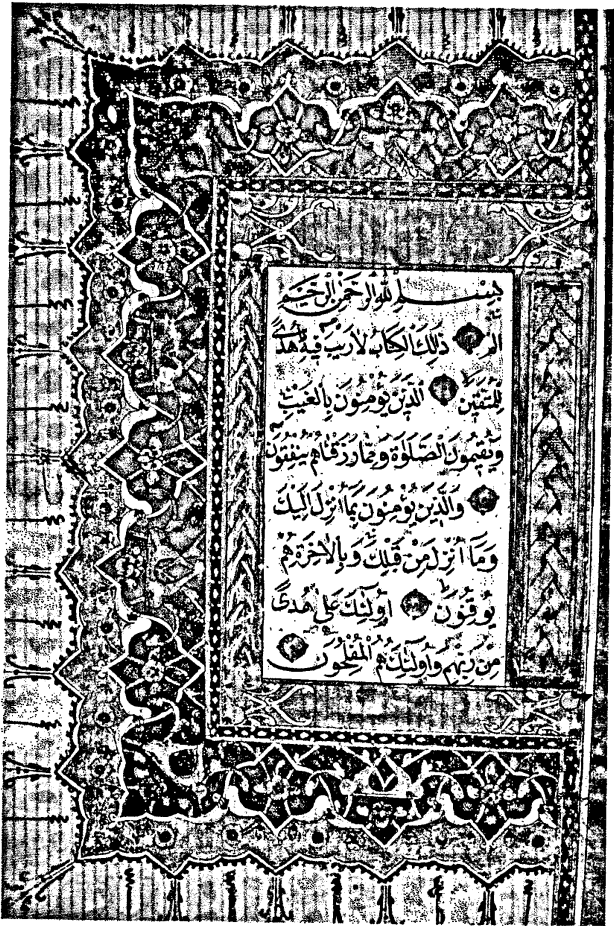 بِسْمِ اللّٰهِ الرَّحْمٰنِ الرَّحِيْمِ
الٓمٓ ذٰلِكَ الْكِتَابُ لَارَيْبَ فِيْهِ هُدًى
لِلْمُتَّقِيْنَ اَلَّذِيْنَ يُؤْمِنُوْنَ بِالْغَيْبِ
وَيُقِيْمُوْنَ الصَّلٰوةَ وَمِمَّا رَزَقْنَاهُمْ يُنْفِقُوْنَ
وَالَّذِيْنَ يُؤْمِنُوْنَ بِمَا اُنْزِلَ اِلَيْكَ
وَمَا اُنْزِلَ مِنْ قَبْلِكَ وَبِالْاٰخِرَةِ هُمْ
يُوْقِنُوْنَ اُولٰٓئِكَ عَلٰى هُدًى
مِنْ رَبِّهِمْ وَاُولٰٓئِكَ هُمُ الْمُفْلِحُوْنَ